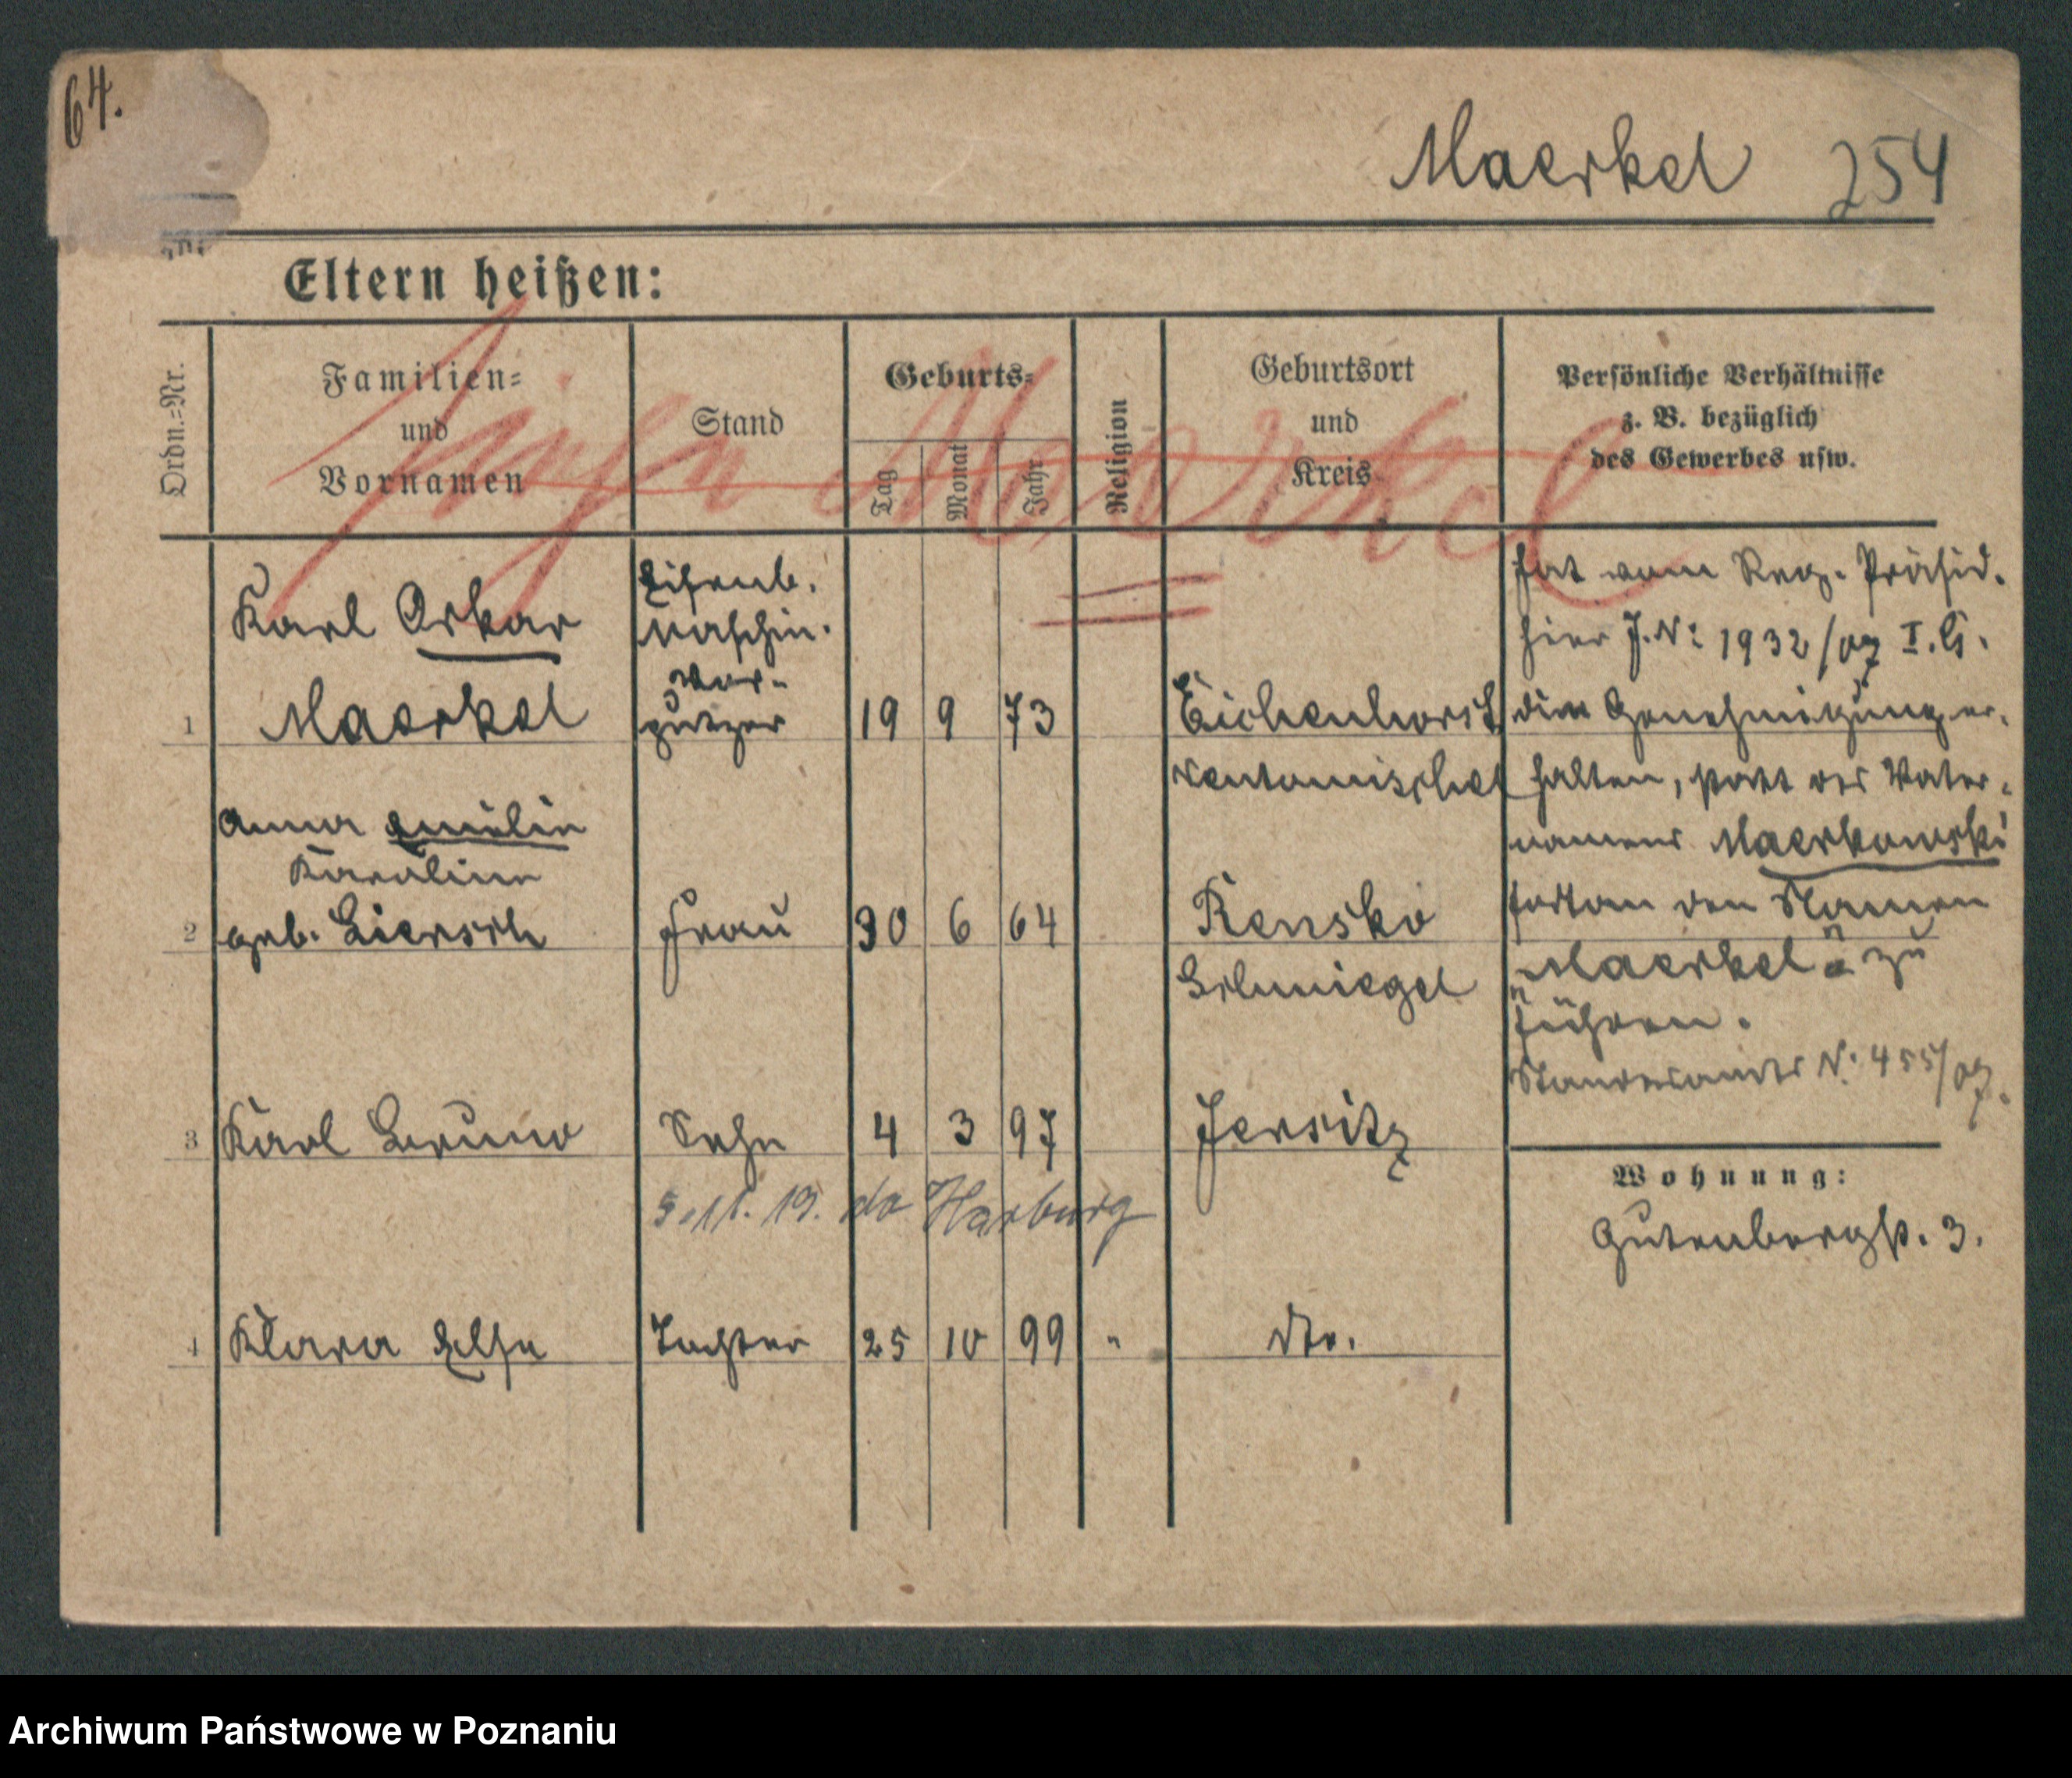 64.
Maerkel 254
Eltern heißen:
jetzt Maerkel
Ordn.-Nr.
Familien-
und
Vornamen
Stand
Geburts-
Tag
Monat
Jahr
Religion
Geburtsort
und
Kreis
Persönliche Verhältnisse
z. B. bezüglich
des Gewerbes usw.
1
Karl Oskar
Maerkel
Eisenb.
Maschin.
vor-
putzer
19 9 73
Eichenhorst
Neutomischel
2
Anna Emilie
Karoline
geb. Liersch
Frau
30 6 64
Rensko
Schmiegel
3
Karl Bruno
Sohn
4 3 97
Jersitz
5.11.19. do Harburg
4
Klara Else
Tochter
25 10 99 "
dto.
hat vom Reg. Präsid.
hier J. N: 1932/07 I. G.
die Genehmigung er-
halten, statt des Vater-
namens Maerkowski
fortan den Namen
„Maerkel" zu
führen.
Standesamts N: 455/07.
Wohnung:
Gutenbergstr. 3.
Archiwum Państwowe w Poznaniu